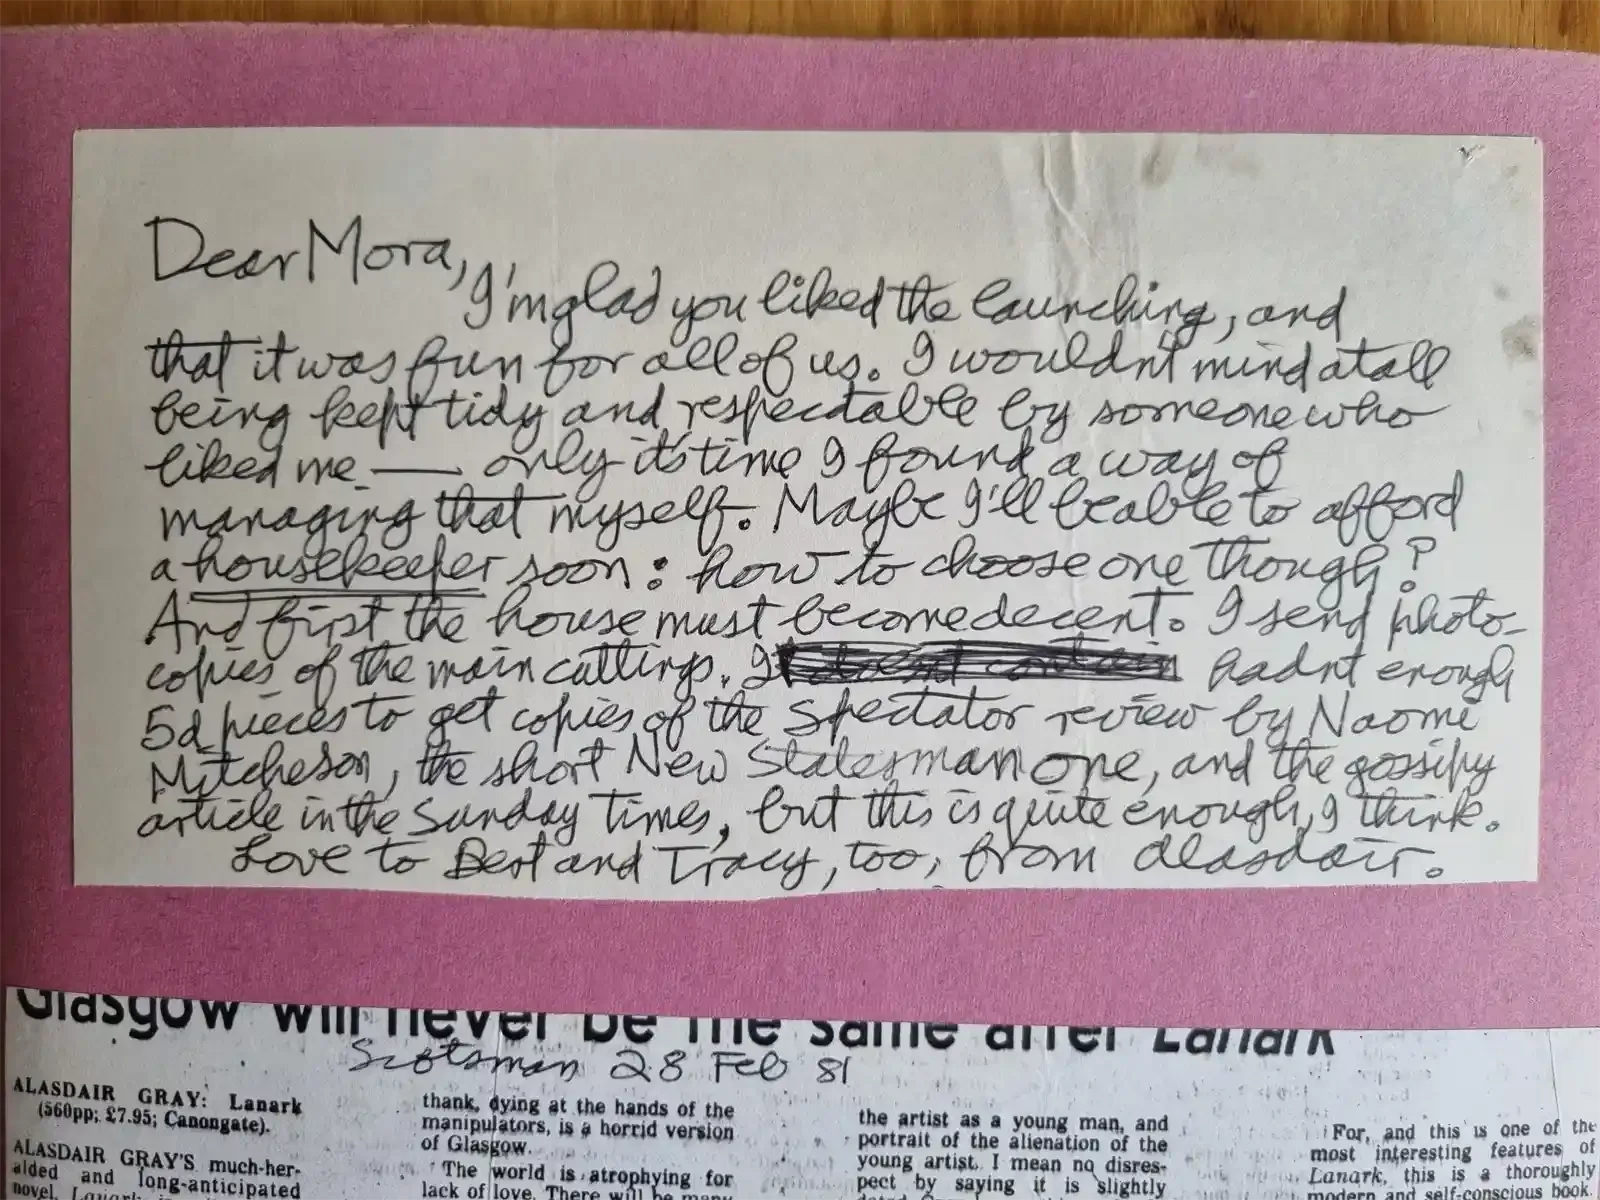 Dear Mora,
I'm glad you liked the launching, and
that it was fun for all of us. I wouldn't mind at all
being kept tidy and respectable by someone who
liked me — only it's time I found a way of
managing that myself. Maybe I'll be able to afford
a housekeeper soon: how to choose one though?
And first the house must become decent. I send photo-
copies of the main cuttings. I hadnt enough
5d pieces to get copies of the Spectator review by Naomi
Mitcheson, the short New Statesman one, and the gossipy
article in the Sunday Times, but this is quite enough, I think.
Love to Bert and Tracy, too, from Alasdair.
Glasgow will never be the same after Lanark
Scotsman 28 Feb 81
ALASDAIR GRAY: Lanark
(560pp; £7.95; Canongate).
ALASDAIR GRAY'S much-her-
alded and long-anticipated
novel, Lanark
thank, dying at the hands of the
manipulators, is a horrid version
of Glasgow.
The world is atrophying for
lack of love. There will be many
the artist as a young man, and
portrait of the alienation of the
young artist. I mean no disres-
pect by saying it is slightly
For, and this is one of the
most interesting features of
Lanark, this is a thoroughly
modern and self-conscious book.